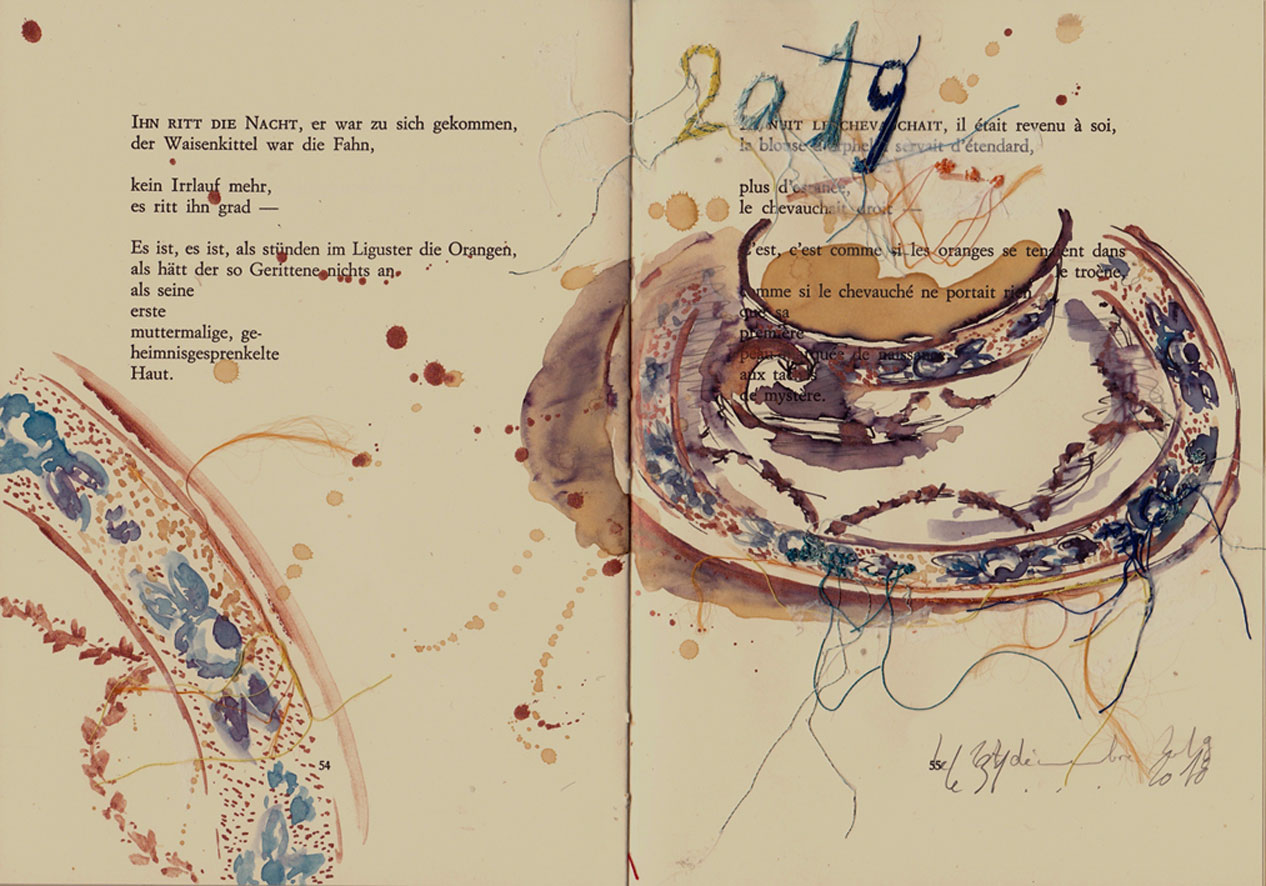 IHN RITT DIE NACHT, er war zu sich gekommen,
der Waisenkittel war die Fahn,
kein Irrlauf mehr,
es ritt ihn grad —
Es ist, es ist, als stünden im Liguster die Orangen,
als hätt der so Gerittene nichts an
als seine
erste
muttermalige, ge-
heimnisgesprenkelte
Haut.
54
2019
NUIT LE CHEVAUCHAIT, il était revenu à soi,
la blouse d'orphelin servait d'étendard,
plus
le chevauchait droit —
C'est, c'est comme si les oranges se tenaient dans
le troène,
comme si le chevauché ne portait rien
que sa
première
peau marquée de naissance,
aux taches
de mystère.
55